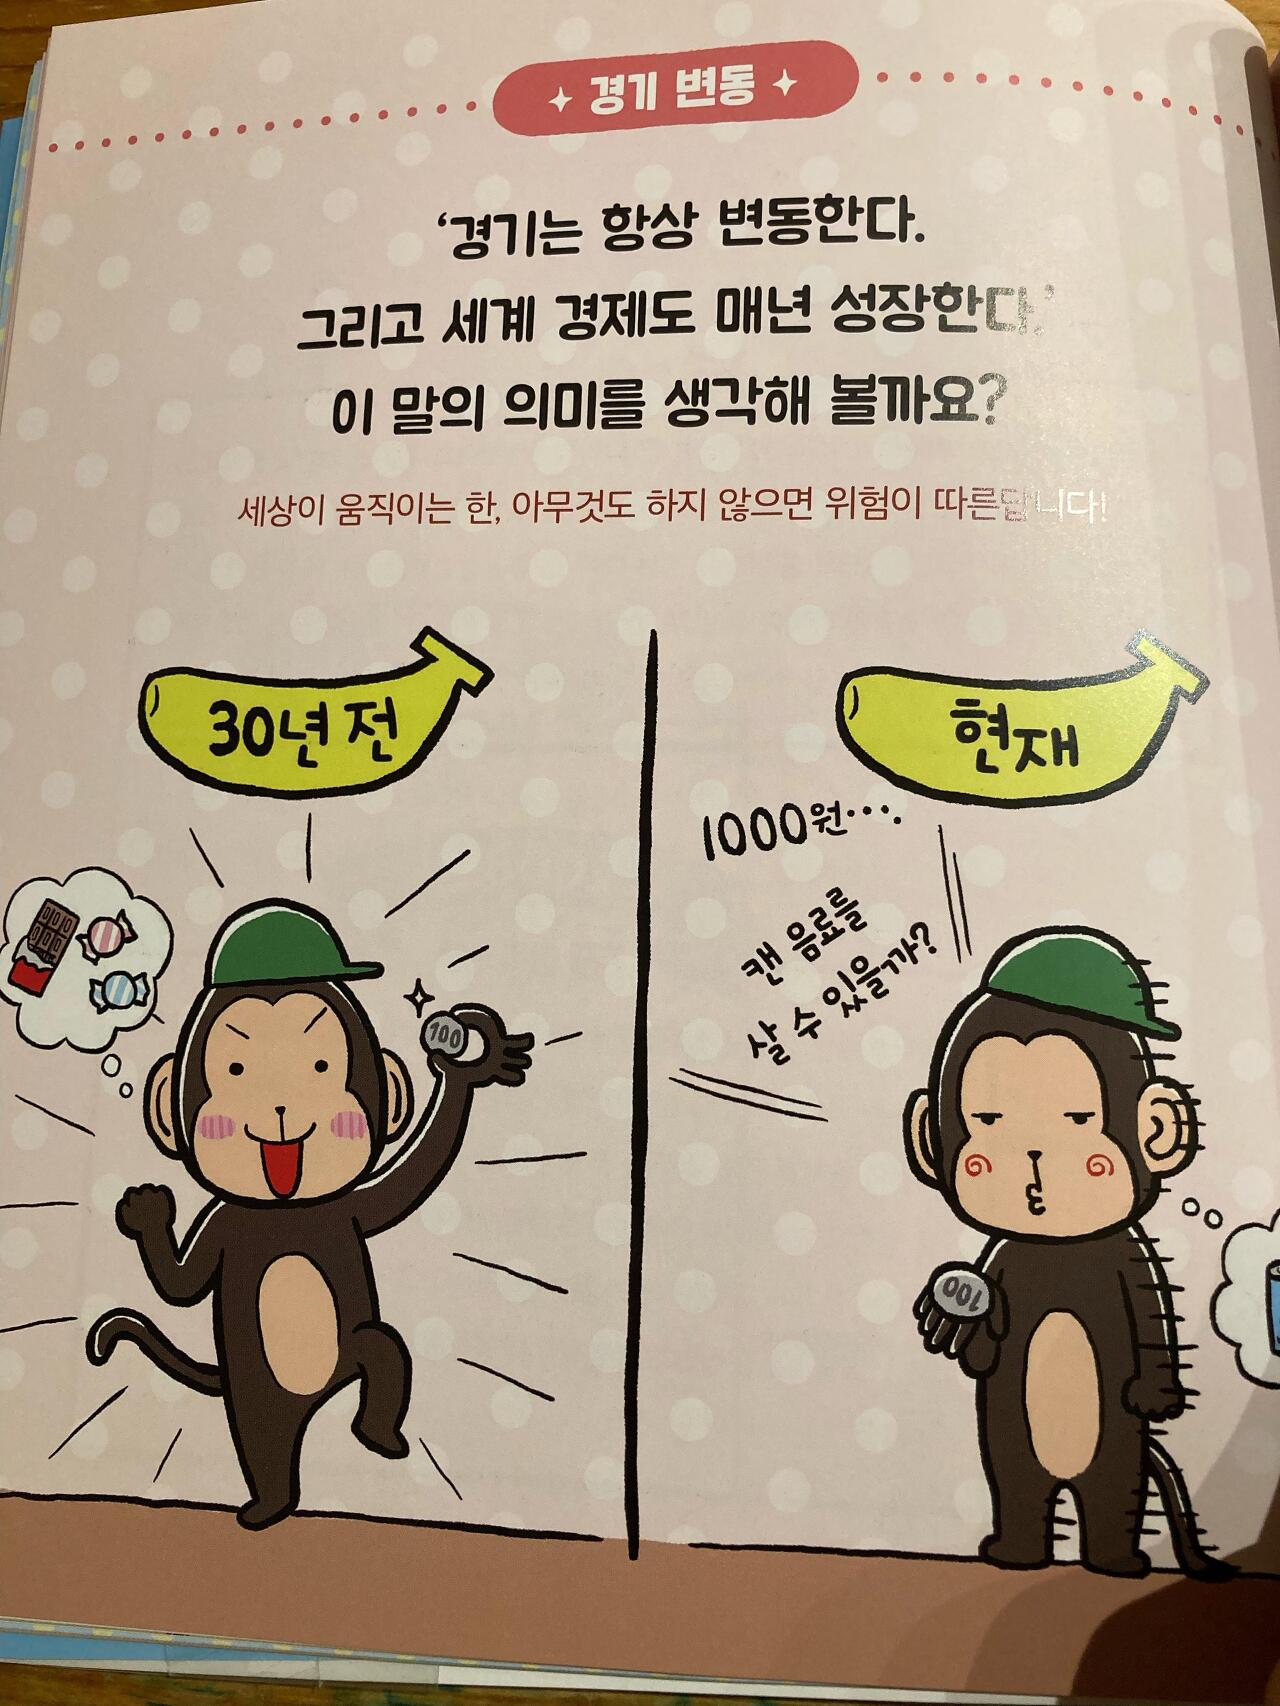 경기 변동
‘경기는 항상 변동한다.
그리고 세계 경제도 매년 성장한다.’
이 말의 의미를 생각해 볼까요?
세상이 움직이는 한, 아무것도 하지 않으면 위험이 따른답니다!
30년 전
현재
1000원….
캔 음료를
살 수 있을까?
100
100